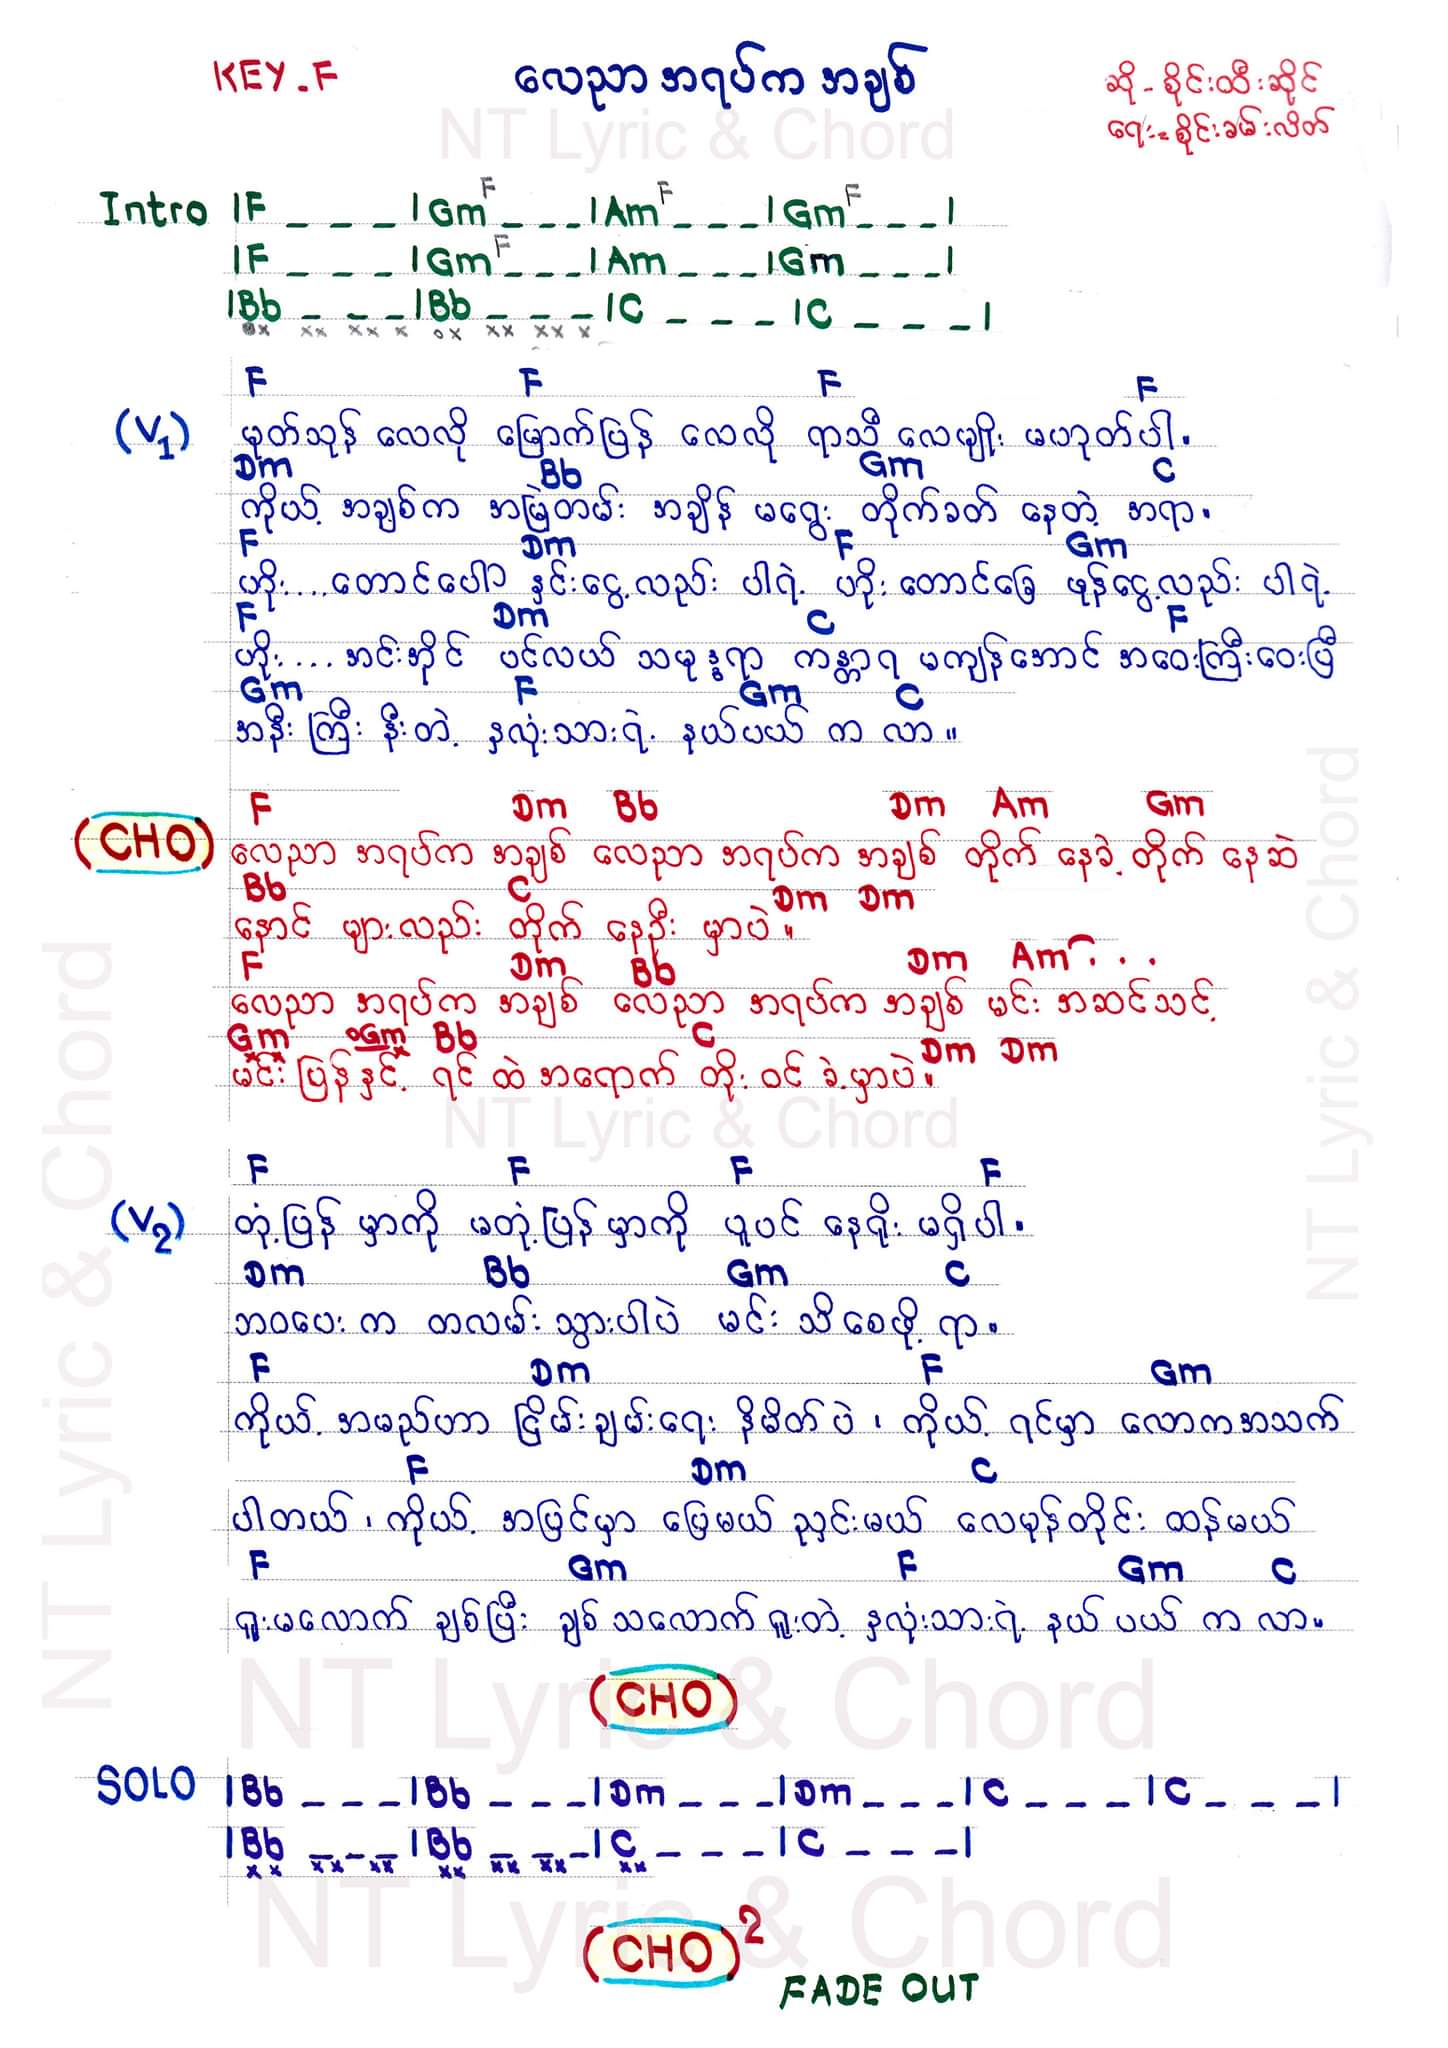 KEY.F
လေညာအရပ်ကအချစ်
ဆို - စိုင်းထီးဆိုင်
ရေး = စိုင်းခမ်းလိတ်
NT Lyric & Chord
Intro |F _ _ _ |Gm F _ _ _ |Am F _ _ _ |Gm F _ _ _ |
|F _ _ _ |Gm F _ _ _ |Am _ _ _ |Gm _ _ _ |
|Bb _ _ _ |Bb _ _ _ |C _ _ _ |C _ _ _ |
F F F F
(V1) မုတ်သုန် လေလို မြောက်ပြန် လေလို ရာသီ လေမျိုး မဟုတ်ပါ။
Dm Bb Gm C
ကိုယ့် အချစ်က အမြဲတမ်း အချိန် မရွေး တိုက်ခတ် နေတဲ့ အရာ။
F Dm F Gm
ဟိုး....တောင်ပေါ် နှင်းငွေ့လည်း ပါရဲ့ ဟိုး တောင်ခြေ ဖုန်ငွေ့လည်း ပါရဲ့
F Dm C F
ဟိုး.... အင်းအိုင် ပင်လယ် သမုဒ္ဒရာ ကန္တာရ မကျန်အောင် အဝေးကြီးဝေးပြီ
Gm F Gm C
အနီး ကြီး နီးတဲ့ နှလုံးသားရဲ့ နယ်ပယ် က လာ။
(CHO) F Dm Bb Dm Am Gm
လေညာ အရပ်က အချစ် လေညာ အရပ်က အချစ် တိုက် နေခဲ့ တိုက် နေဆဲ
Bb C Dm Dm
နောင် များလည်း တိုက် နေဦး မှာပဲ။
F Dm Bb Dm Am . . .
လေညာ အရပ်က အချစ် လေညာ အရပ်က အချစ် မင်း အဆင်သင့်
Gm Gm Bb C Dm Dm
မင်း ပြန်နှင့် ရင် ထဲ အရောက် တိုး ဝင် ခဲ့မှာပဲ။
NT Lyric & Chord
F F F F
(V2) တုံ့ပြန် မှာကို မတုံ့ပြန် မှာကို ပူပင် နေရိုး မရှိပါ။
Dm Bb Gm C
ဘဝပေး က တလမ်း သွားပါပဲ မင်း သိစေဖို့ ရာ။
F Dm F Gm
ကိုယ့် အမည်ဟာ ငြိမ်းချမ်းရေး နိမိတ် ပဲ ၊ ကိုယ့် ရင်မှာ လောကအသက်
F Dm C
ပါတယ် ၊ ကိုယ့် အပြင်မှာ မြေမယ် ညှင်းမယ် လေမုန်တိုင်း ထန်မယ်
F Gm F Gm C
ရူးမလောက် ချစ်ပြီး ချစ် သလောက် ရူးတဲ့ နှလုံးသားရဲ့ နယ် ပယ် က လာ။
(CHO)
NT Lyric & Chord
SOLO |Bb _ _ _ |Bb _ _ _ |Dm _ _ _ |Dm _ _ _ |C _ _ _ |C _ _ _ |
|Bb _ _ _ |Bb _ _ _ |C _ _ _ |C _ _ _ |
NT Lyric & Chord
(CHO)2
FADE OUT
NT Lyric & Chord
NT Lyric & Chord